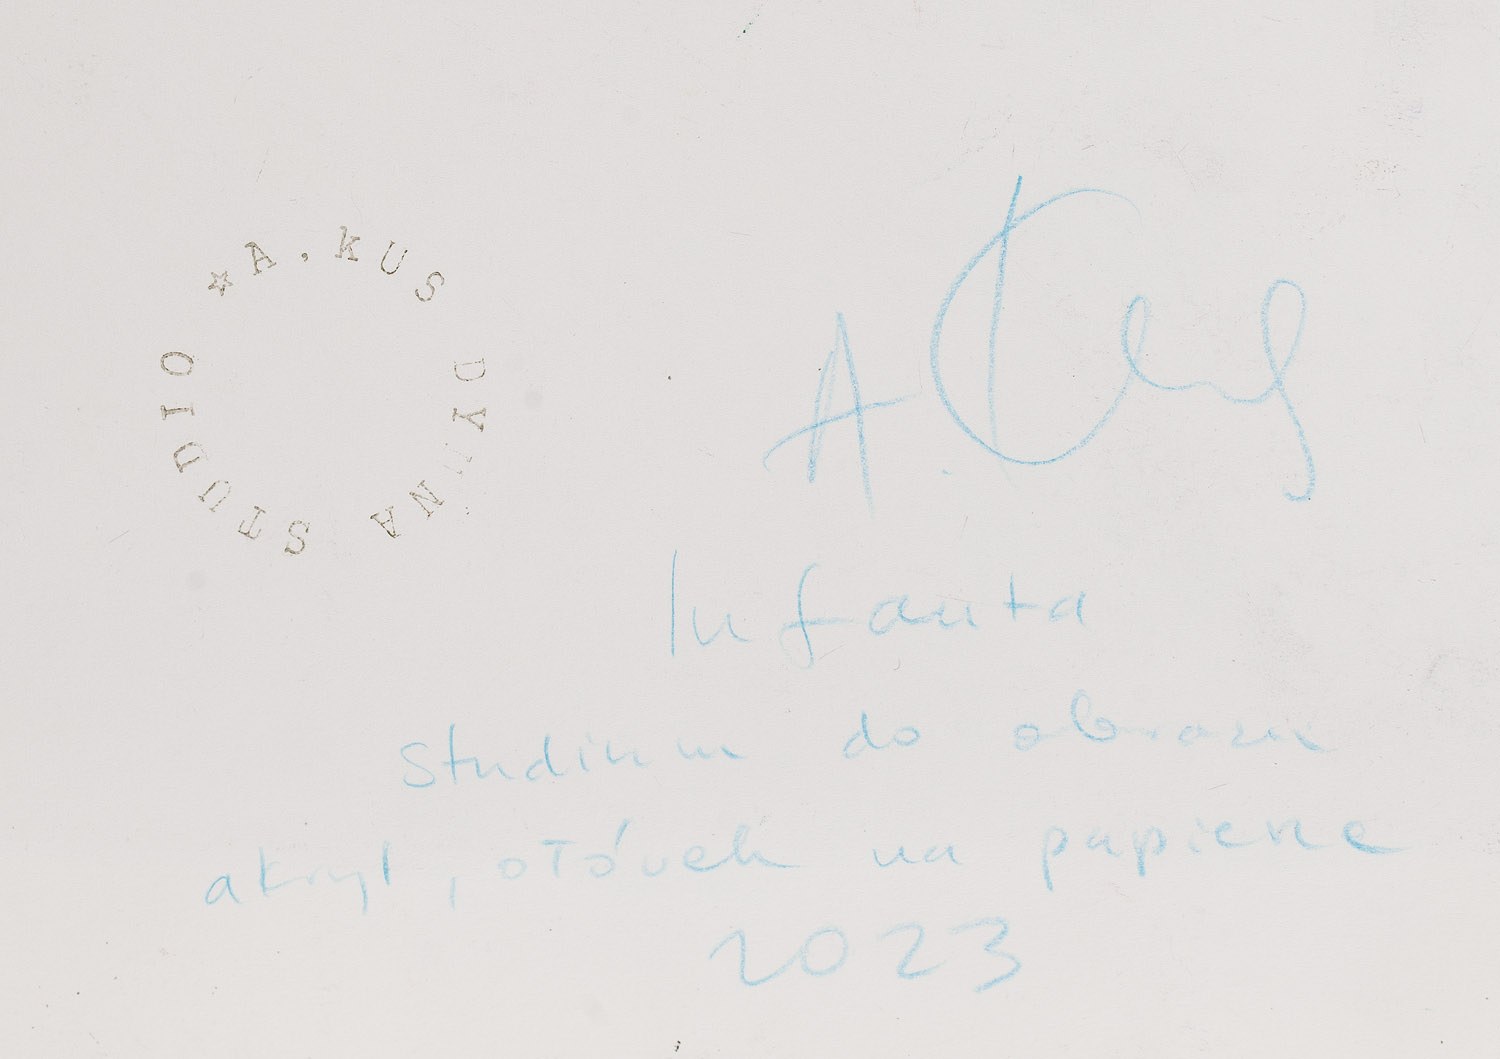 ☆A.KUS DYMNA STUDIO
A. Kus
Infanta
Studium do obrazu
akryl, ołówek na papierze
2023